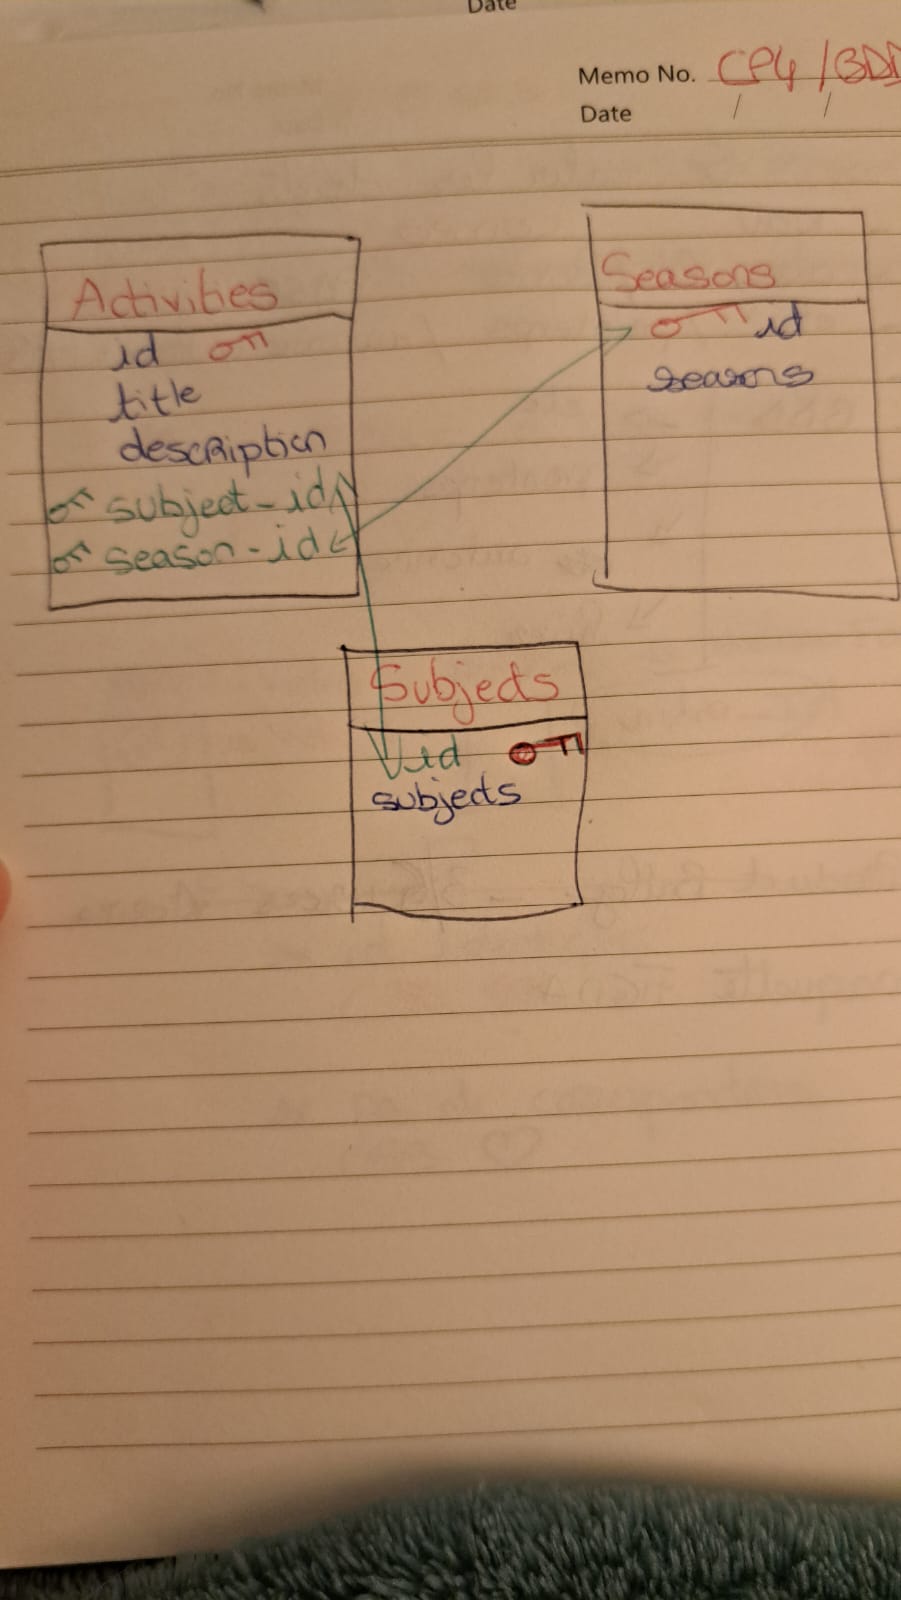 Date
Memo No. CP4 / BDD
Date / /
Activities
id
title
description
subject-id
season-id
Seasons
id
seasons
Subjects
id
subjects